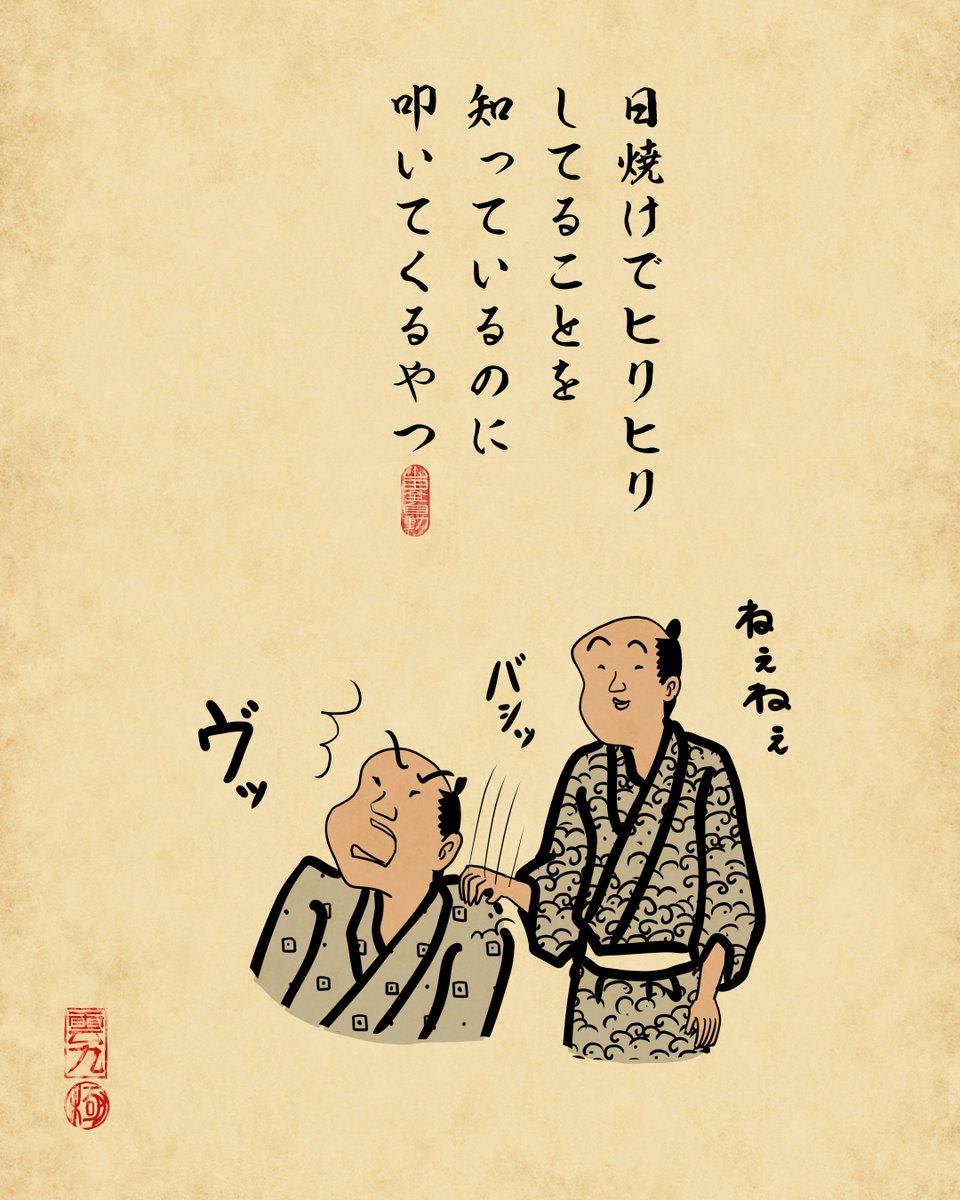 日焼けでヒリヒリ
してることを
知っているのに
叩いてくるやつ
ねぇねぇ
バシッ
ヴッ